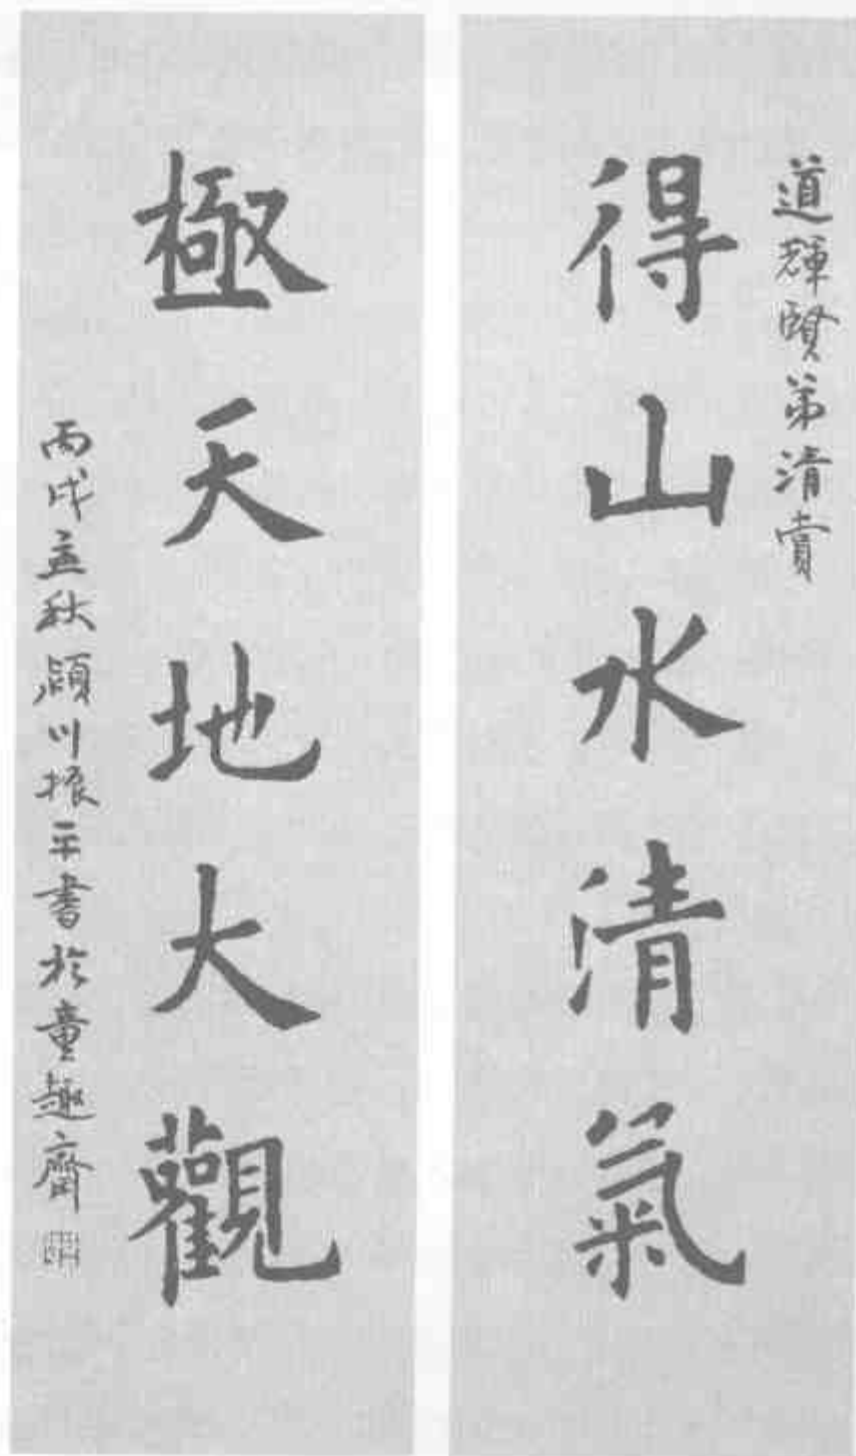 道輝賢弟清賞
得山水清氣
極天地大觀
丙戌孟秋潁川振平書於童趣齋